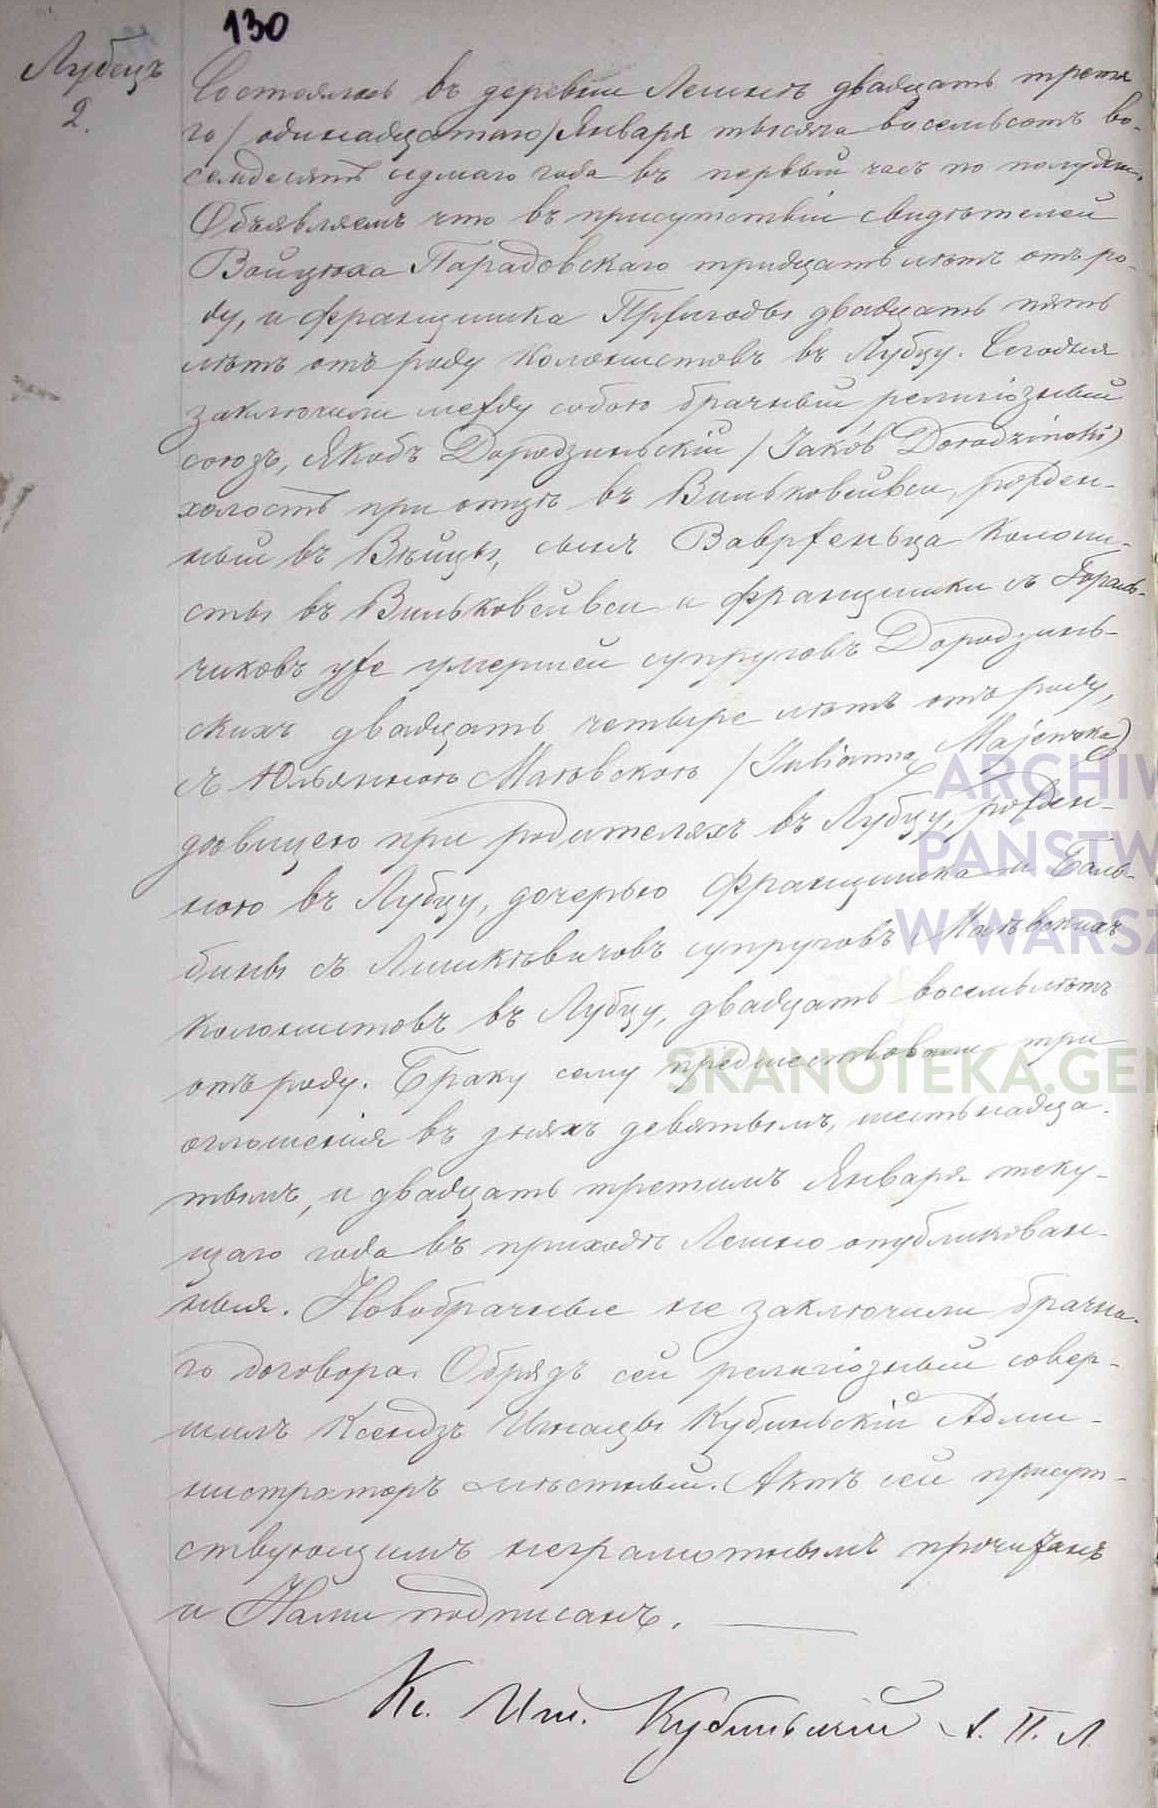 130
Лубецъ
2.
Состоялось въ деревни Лешнѣ двадцать третя
го/одинадцатаго/Января тысяча восемьсотъ во-
семдесятъ седмаго года въ первый часъ по полудни.
Объявляемъ что въ присутствіи свидѣтелей
Войцѣха Парадовскаго тридцать лѣтъ отъ ро-
ду, и Францишка двадцать пять
лѣтъ отъ роду колонистовъ въ Лубцу. Сегодня
заключили между собою брачный религіозный
союзъ, Якобъ Дородзиньскій /Jakób Dorodzinski/
холостъ при отцѣ въ Вильковейвси, рожден-
ный въ сынъ Ваврженьца колони-
сты въ Вильковейвси и Францишки съ Гораль-
чиковъ уже умершей супруговъ Дородзинь-
скихъ двадцать четыре лѣтъ отъ роду,
съ Юльянною Маѣвскою /Julianna Majewska/
дѣвицею при родителяхъ въ Лубцу, рожден-
ною въ Лубцу, дочерью Францишка и Баль-
бины съ Лишкѣвичовъ супруговъ Маѣвскихъ
колонистовъ въ Лубцу, двадцать восемь лѣтъ
отъ роду. Браку сему предшествовали три
оглошенія въ дняхъ девятымъ, шестьнадца-
тымъ, и двадцать третимъ Января теку-
щаго года въ приходѣ Лешно опубликован-
ныя. Новобрачные не заключили брачна-
го договора. Обрядъ сей религіозный совер-
шилъ Ксендзъ Игнацы Кубиньскій Адми-
нистраторъ мѣстный. Актъ сей присут-
ствующимъ неграмотнымъ прочитанъ
и Нами подписанъ.
Кс. Игн. Кубиньскій А. П. Л.
ARCHIW
PAŃSTW
W WARSZ
SKANOTEKA.GEN